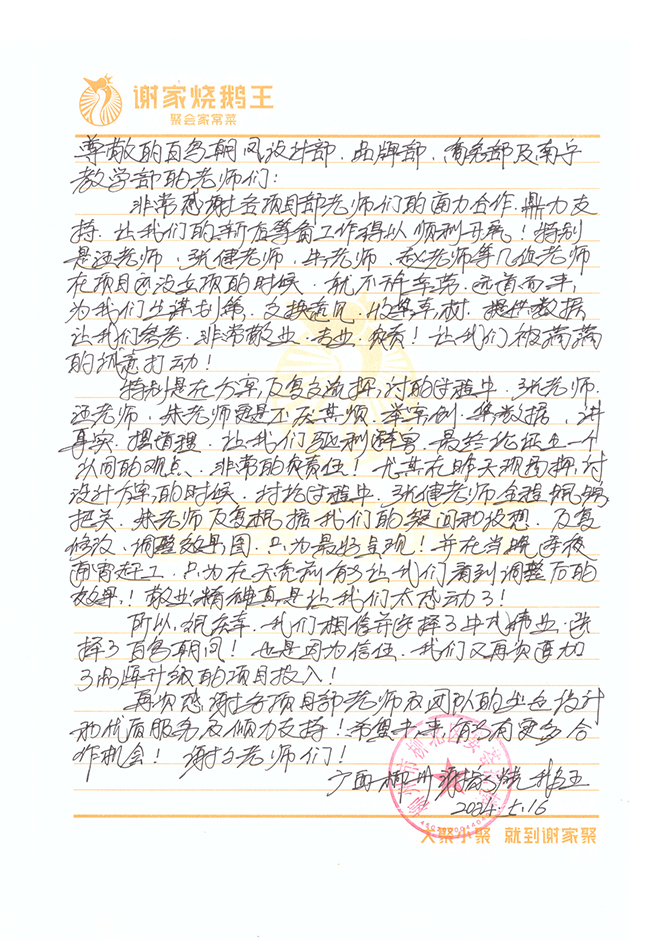 谢家烧鹅王
聚会家常菜
尊敬的百鸟朝凤设计部、品牌部、商务部及南宁
教学部的老师们：
非常感谢各项目部老师们的通力合作、鼎力支
持、让我们的新店筹备工作得以顺利开展！特别
是汪老师、张健老师、朱老师、赵老师等几位老师
在项目立项的时候、就不辞辛劳、远道而来，
为我们出谋划策、交换意见、提供数据
让我们参考、非常敬业、专业、负责！让我们被满满
的诚意打动！
特别是在方案反复交流探讨的过程中、张老师
汪老师、朱老师更是不厌其烦、举案例、集数据、讲
真实、摆道理、让我们最终论证出一个
认同的观点、非常的负责任！尤其在昨天现图探讨
设计方案的时候、讨论过程中、张健老师全程
把关、朱老师反复根据我们的疑问和设想、反复
修改、调整效果图、只为最好呈现！并在当晚连夜
通宵赶工、只为在天亮前能够让我们看到调整后的
效果！敬业精神真是让我们太感动了！
所以、我们相信并选择了、选
择了百鸟朝凤！也是因为信任、我们又再次追加
了品牌升级的项目投入！
再次感谢各项目部老师及团队的专业设计
和优质服务及倾力支持！希望未来，能有更多合
作机会！谢谢老师们！
广西柳州谢家烧鹅王
2024.5.16
大聚小聚 就到谢家聚